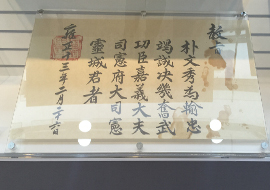 教旨
朴文秀為輸忠
竭誠決幾奮武
功臣嘉義大夫
司憲府大司憲
靈城君者
雍正十三年二月二十六日